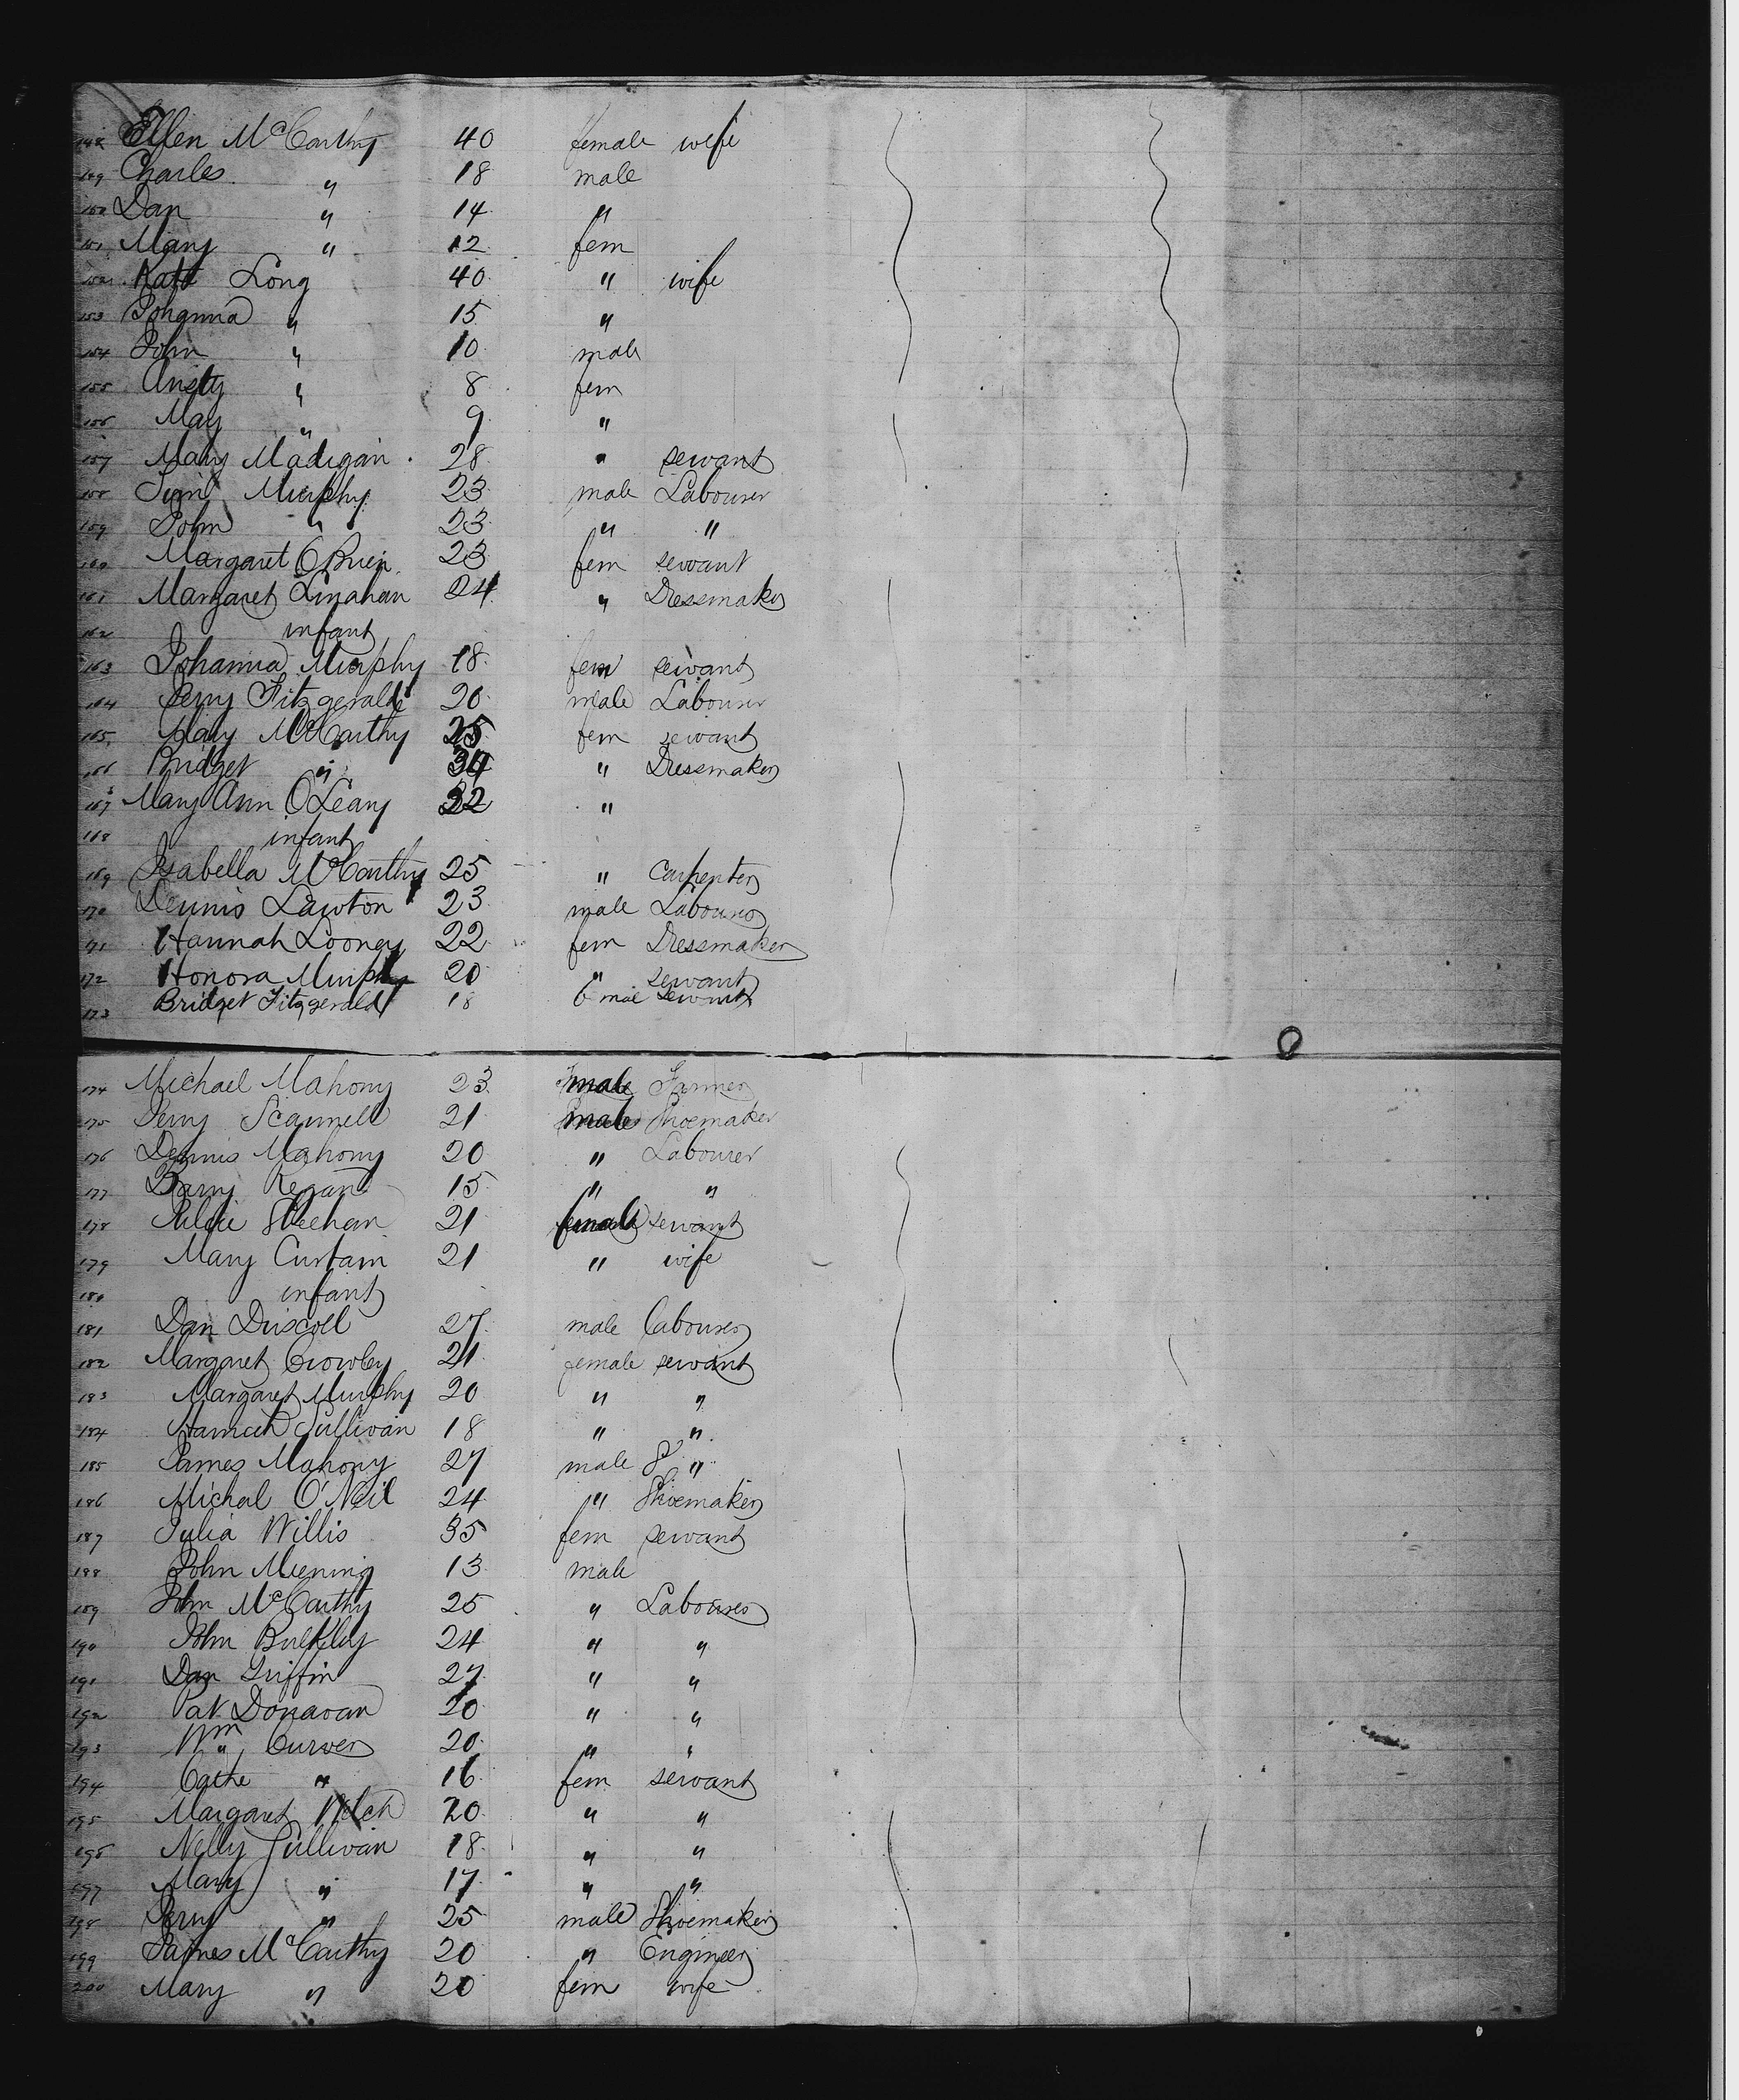 148 Ellen McCarthy 40 female wife
149 Charles " 18 male
150 Dan " 14 "
151 Mary " 12 fem
152 Kate Long 40 " wife
153 Johanna " 15 "
154 John " 10 male
155 Ansty " 8 fem
156 May " 9 "
157 Mary Madigan 28 " servant
158 Murphy 23 male Labourer
159 John " 23 " "
160 Margaret O'Brien 23 fem servant
161 Margaret Linahan 24 " Dressmaker
162 infant
163 Johanna Murphy 18 fem servant
164 Jerry Fitzgerald 20 male Labourer
165 Mary McCarthy 25 fem servant
166 Bridget " 34 " Dressmaker
167 Mary Ann O'Leary 22 "
168 infant
169 Isabella McCarthy 25 " Carpenter
170 Dennis Lawton 23 male Labourer
171 Hannah Looney 22 fem Dressmaker
172 Honora Murphy 20 " servant
173 Bridget Fitzgerald 18 servant
174 Michael Mahony 23 male Farmer
175 Jerry Scannell 21 male Shoemaker
176 Dennis Mahony 20 " Labourer
177 Barry Regan 15 " "
178 Sheehan 21 female servant
179 Mary Curtain 21 " wife
180 infant
181 Dan Driscoll 27 male Labourer
182 Margaret Crowley 21 female servant
183 Margaret Murphy 20 " "
184 Hannah Sullivan 18 " "
185 James Mahony 27 male "
186 Michal O'Neil 24 " Shoemaker
187 Julia Willis 35 fem servant
188 John 13 male
189 John McCarthy 25 " Labourer
190 John Bulkley 24 " "
191 Dan Griffin 27 " "
192 Pat Donavan 20 " "
193 Wm Curver 20 " "
194 Cathe " 16 fem servant
195 Margaret Welch 20 " "
196 Nelly Sullivan 18 " "
197 Mary " 17 " "
198 Jerry " 25 male Shoemaker
199 James McCarthy 20 " Engineer
200 Mary " 20 fem wife